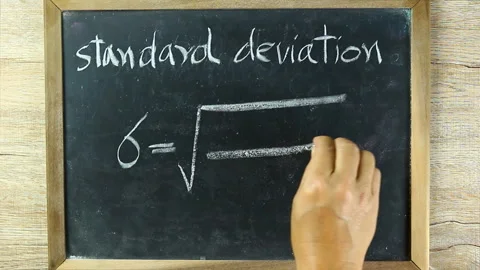 standard deviation
σ = √